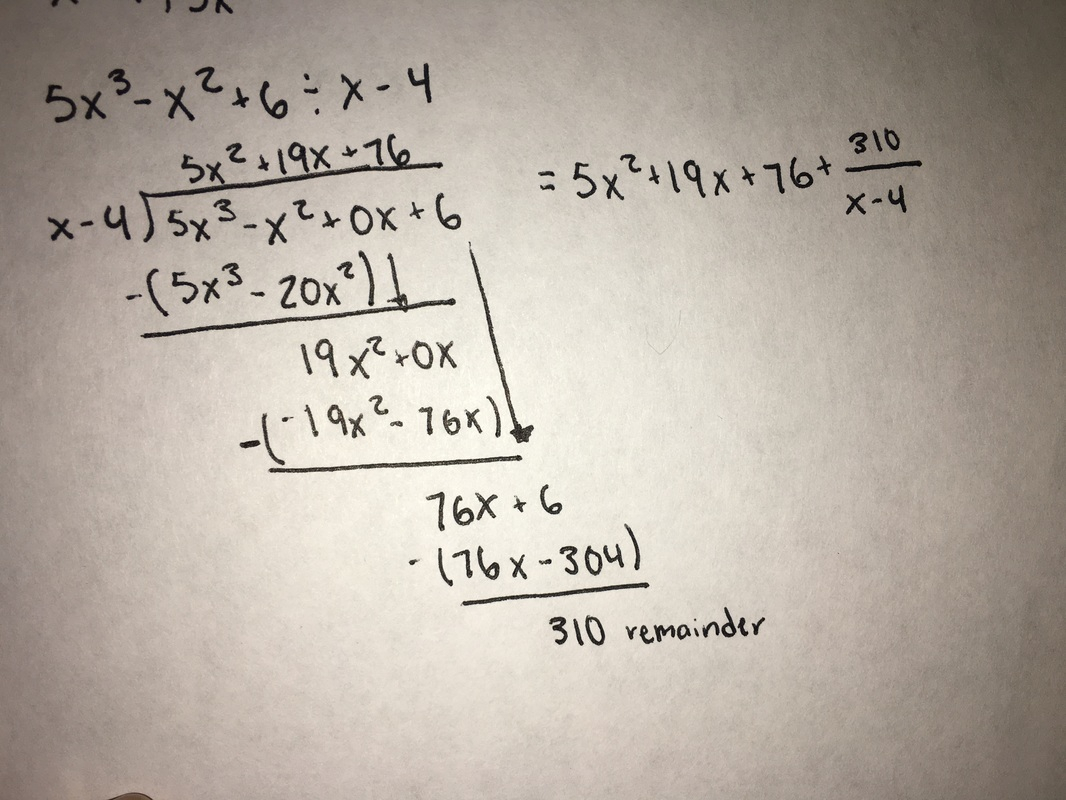 5x³-x²+6÷x-4
5x²+19x+76
x-4)5x³-x²+0x+6
-(5x³-20x²)
19x²+0x
-(-19x²-76x)
76x+6
-(76x-304)
310 remainder
=5x²+19x+76+310/x-4